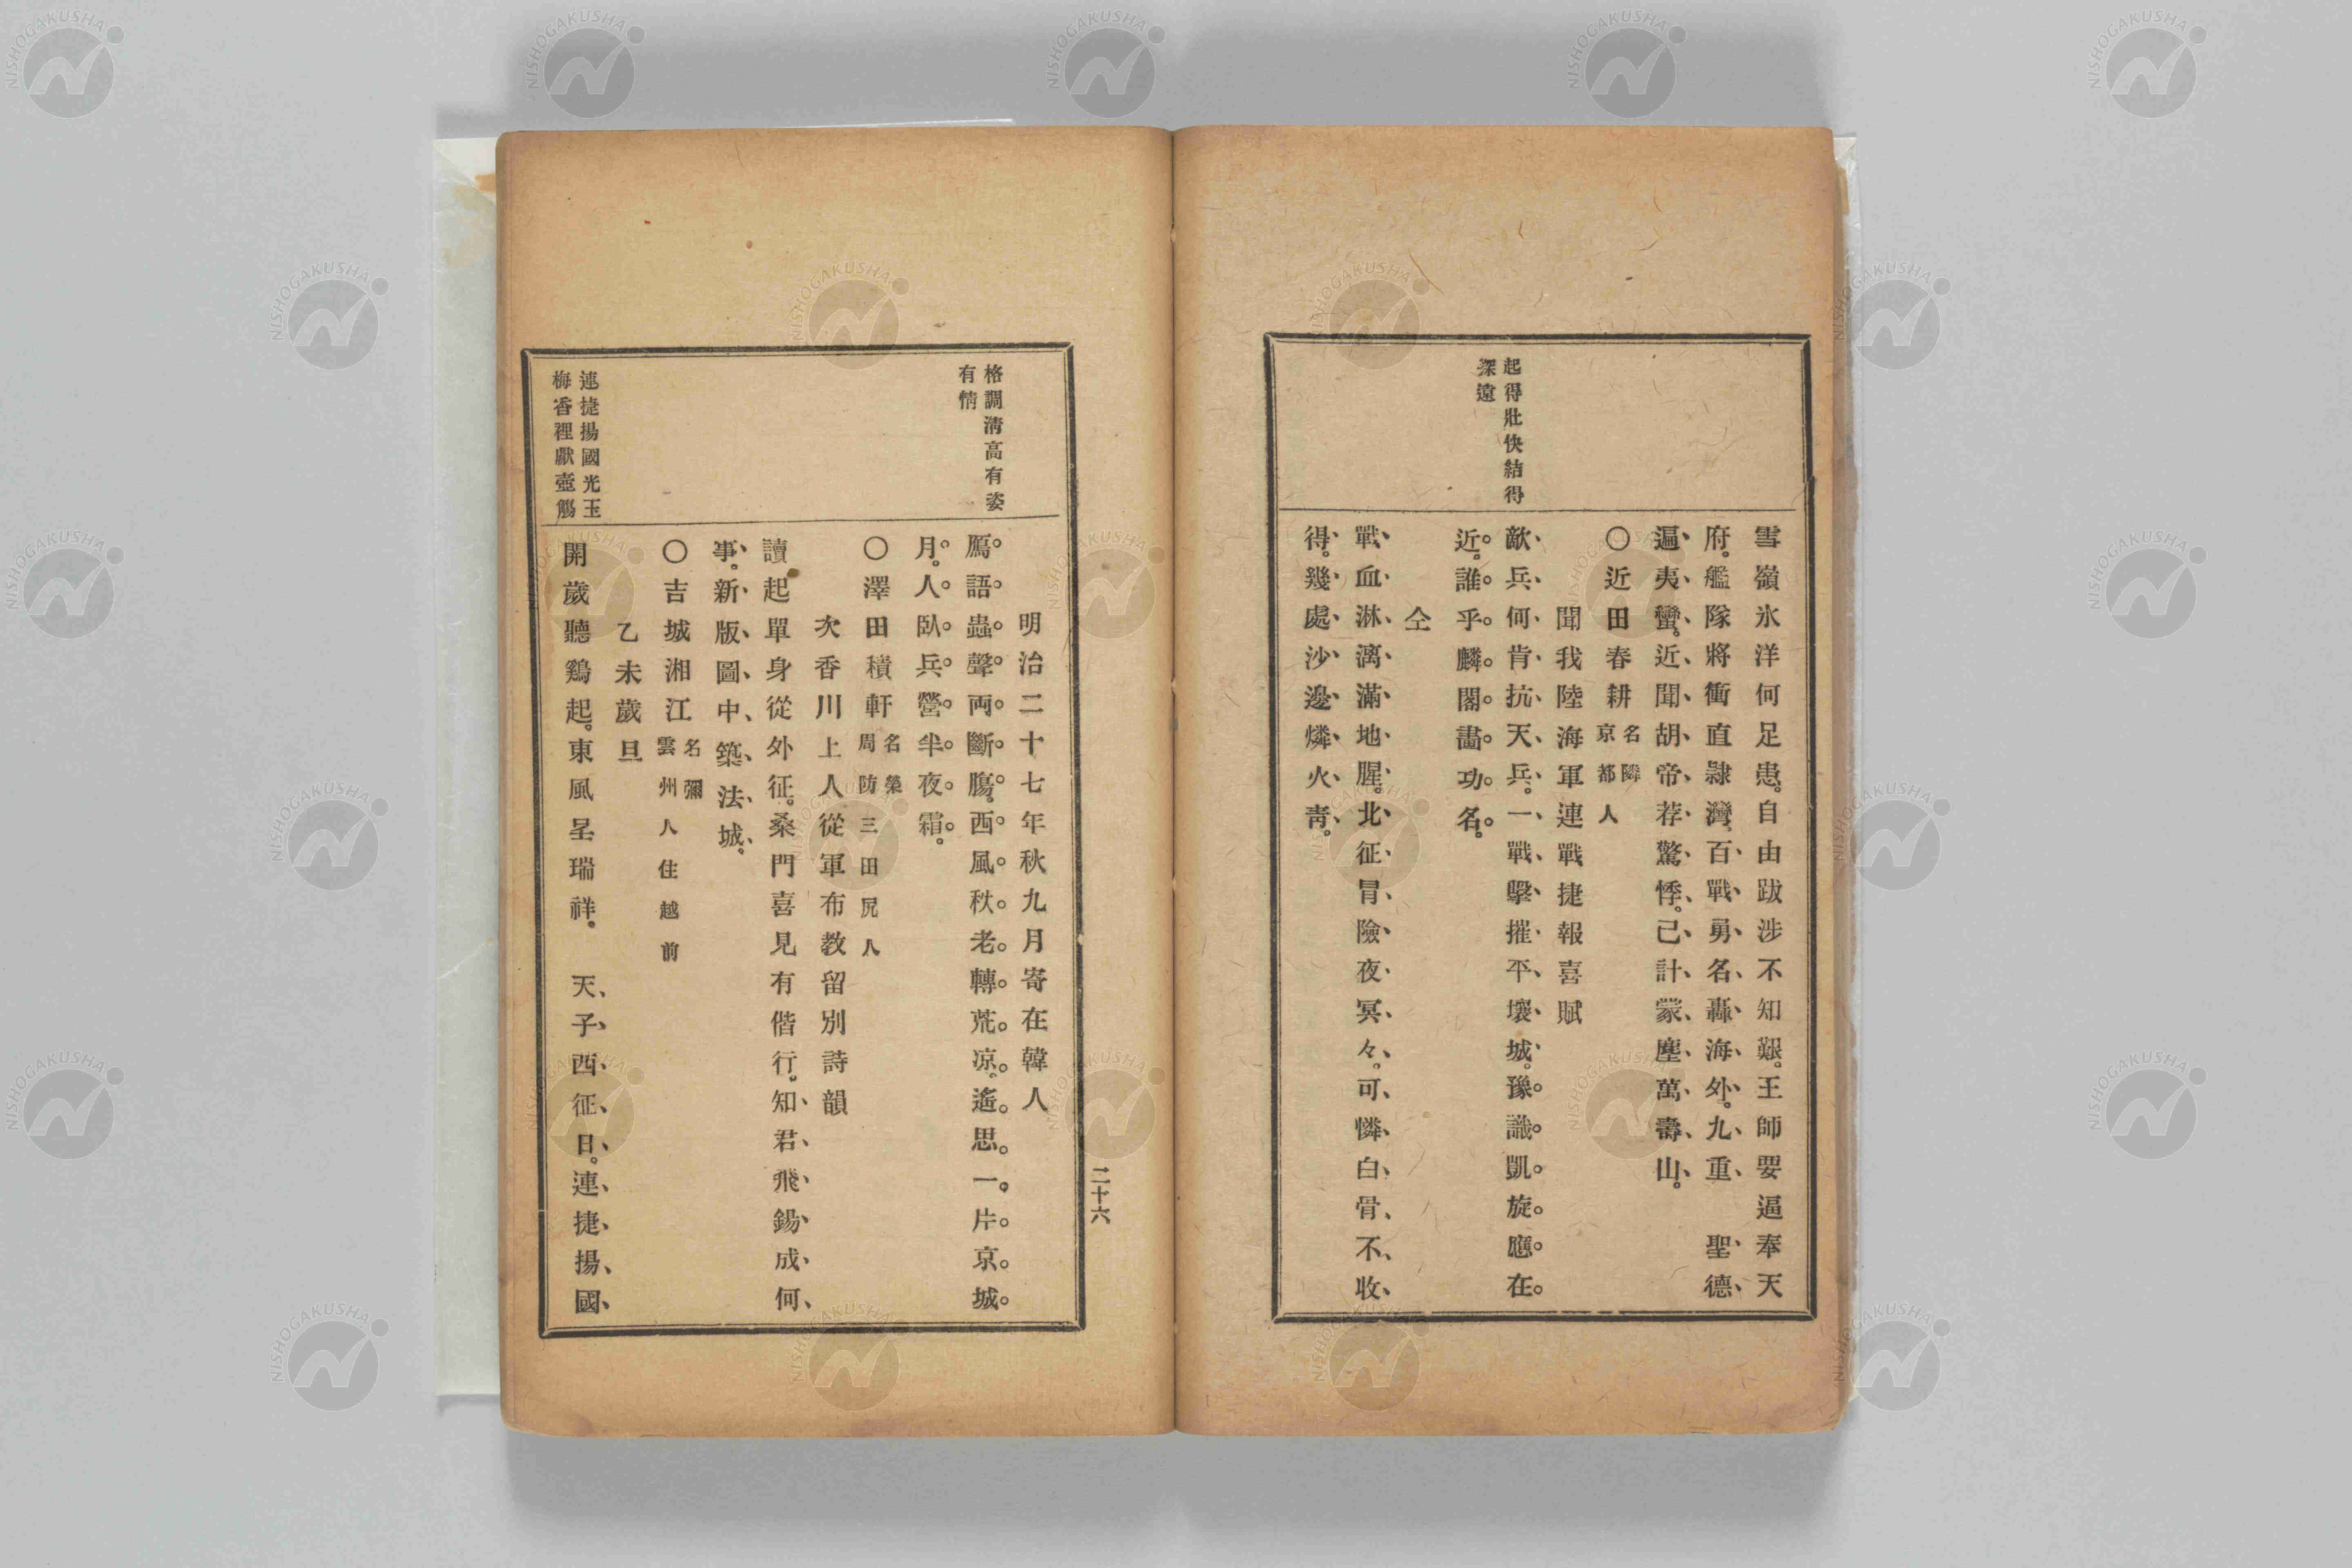 起得壯快結得
深遠
雪嶺氷洋何足患。自由跋涉不知艱。王師要逼奉天
府。艦隊將衝直隷灣、百戰勇名轟海外。九重　聖德
遍夷蠻。近聞胡帝荐驚悸。已計蒙塵萬壽山。
〇近田春耕 名隣 京都人
聞我陸海軍連戰捷報喜賦
敵兵何肯抗天兵。一戰擊摧平壤城。豫識凱旋應在
近。誰乎麟閣畵功名。
仝
戰血淋漓滿地腥。北征冒險夜冥々。可憐白骨不收
得。幾處沙邊燐火靑。
格調淸高有姿
有情
連捷揚國光玉
梅香裡獻壺觴
明治二十七年秋九月寄在韓人
鴈語蟲聲両斷膓。西風秋老轉荒凉。遙思一片京城
月。人臥兵營半夜霜。
〇澤田積軒 名榮 周防三田尻人
次香川上人從軍布教留別詩韻
讀起單身從外征。桑門喜見有偕行。知君飛錫成何
事。新版圖中築法城。
〇吉城湘江 名彌 雲州人住越前
乙未歲旦
開歲聽鷄起。東風呈瑞祥。　天子西征日。連捷揚國
二十六
NISHOGAKUSHA